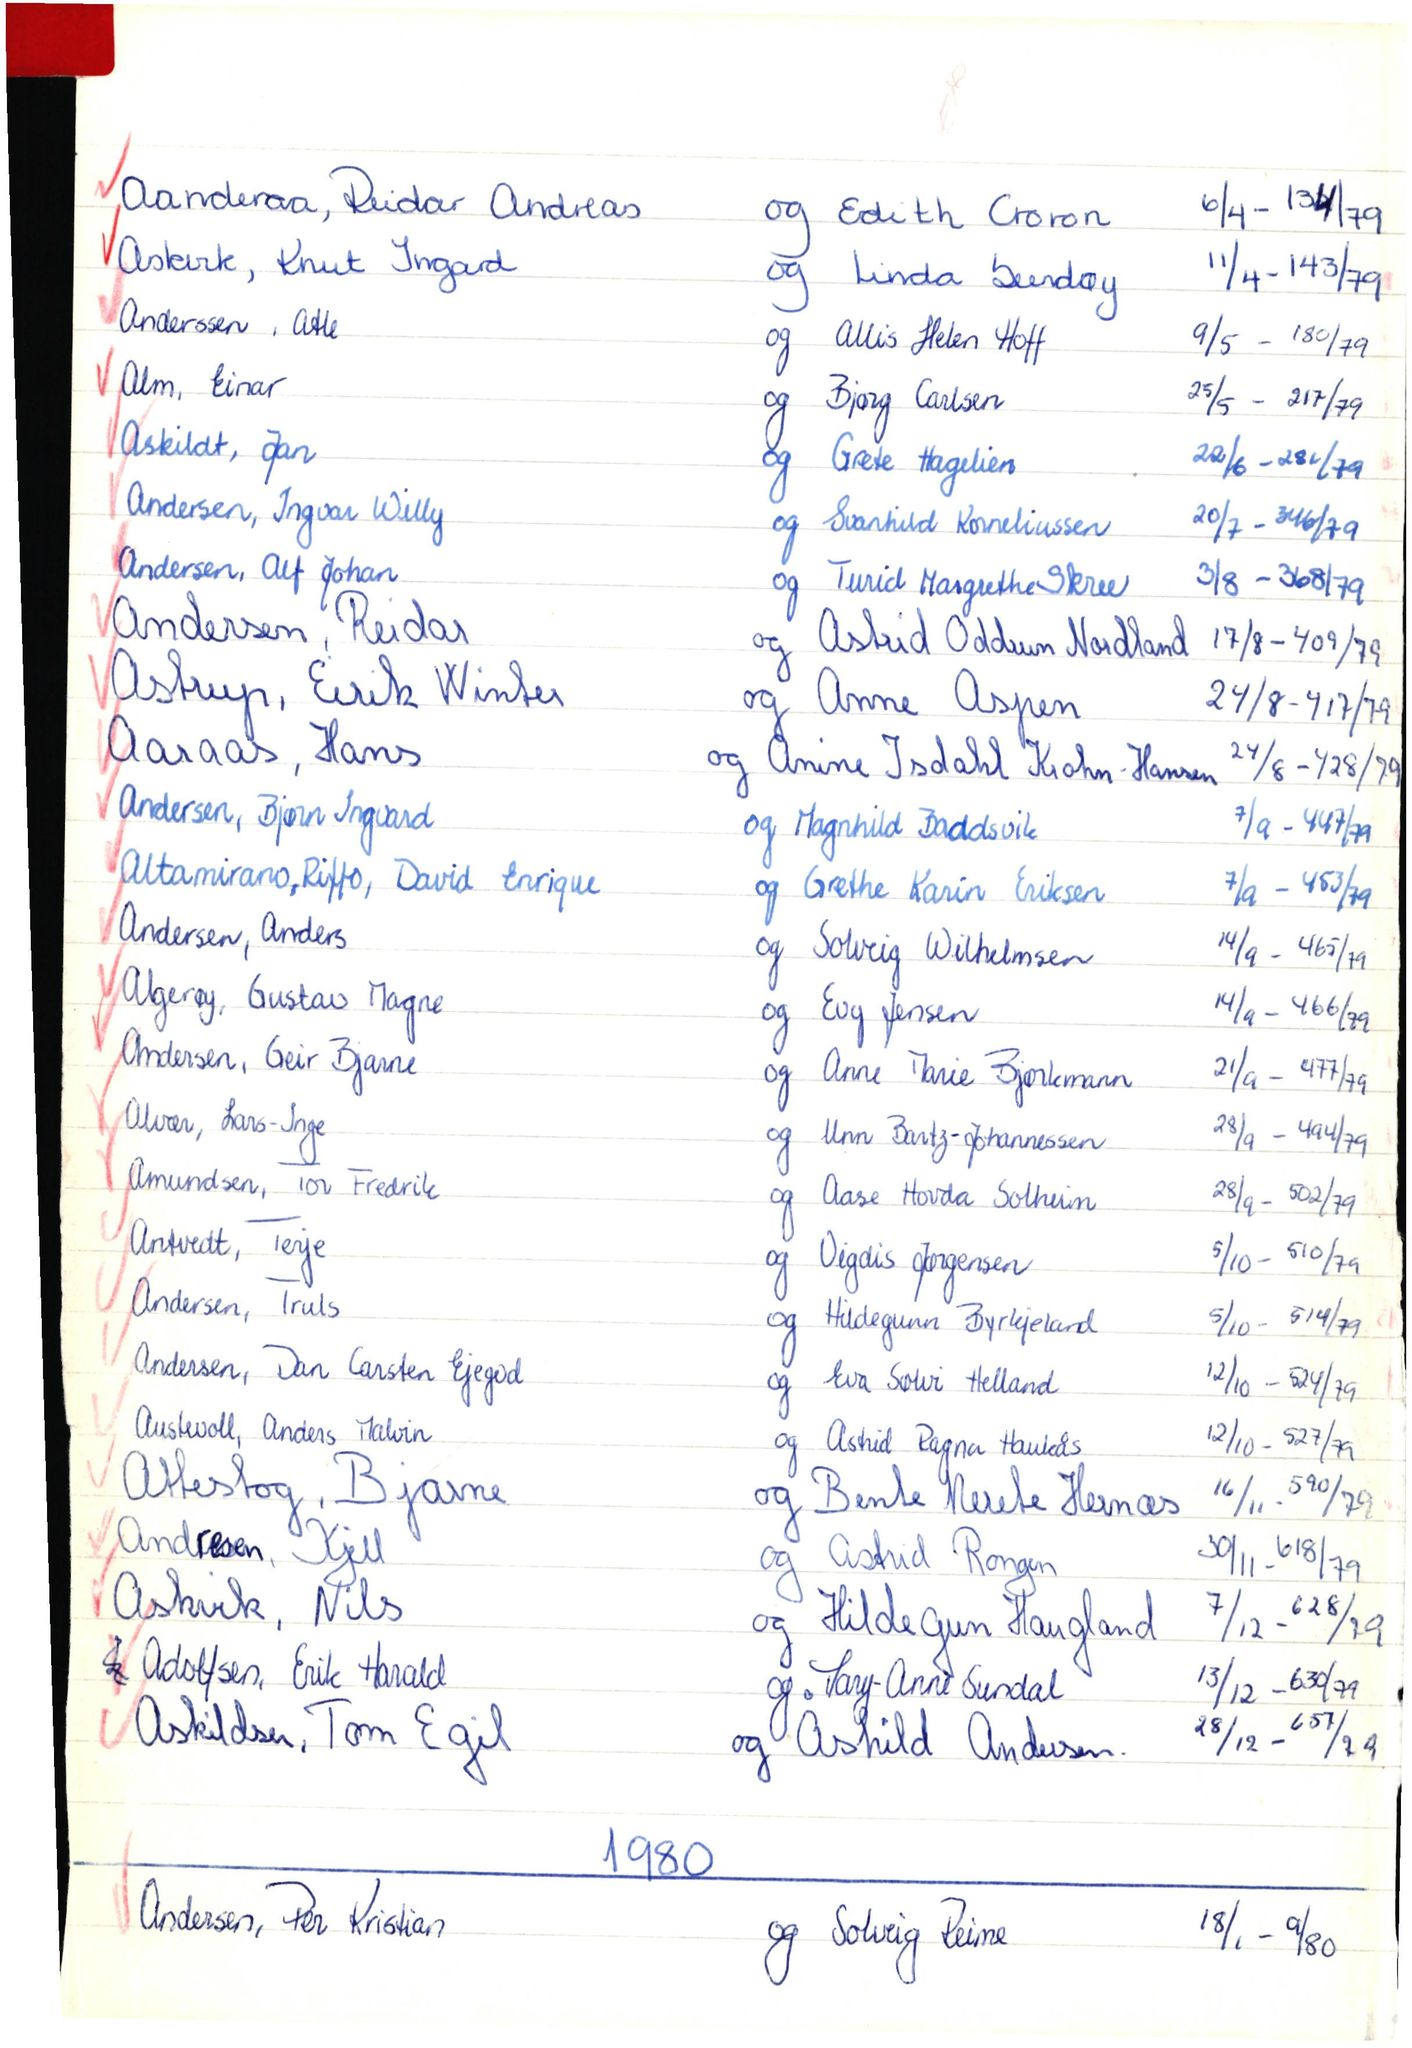 Aanderaa, Reidar Andreas og Edith Croron 6/4 - 134/79
Askvik, Knut Ingard og Linda 11/4 - 143/79
Anderssen, Atle og Allis Helen Hoff 9/5 - 180/79
Alm, Einar og Bjørg Carlsen 25/5 - 217/79
Askildt, Jan og Grete Hagelien 22/6 - 281/79
Andersen, Ingvar Willy og Svanhild Korneliussen 20/7 - 346/79
Andersen, Alf Johan og Turid Margrethe Skree 3/8 - 368/79
Andersen, Reidar og Astrid Oddrun Nordland 17/8 - 409/79
Astrup, Eirik Winter og Anne Aspen 24/8 - 417/79
Aaraas, Hans og Anine Isdahl Krohn-Hansen 24/8 - 428/79
Andersen, Bjørn Ingvard og Magnhild Baddsvik 7/9 - 447/79
Altamirano, Riffo, David Enrique og Grethe Karin Eriksen 7/9 - 453/79
Andersen, Anders og Solveig Wilhelmsen 14/9 - 465/79
Algerøy, Gustav Magne og Evy Jensen 14/9 - 466/79
Andersen, Geir Bjarne og Anne Marie Bjørkmann 21/9 - 477/79
Alvær, Lars-Inge og Unn Bartz-Johannessen 28/9 - 494/79
Amundsen, Tor Fredrik og Aase Hovda Solheim 28/9 - 502/79
Antvedt, Terje og Vigdis Jørgensen 5/10 - 510/79
Andersen, Truls og Hildegunn Byrkjeland 5/10 - 514/79
Andersen, Dan Carsten Ejegod og Eva Sølvi Helland 12/10 - 524/79
Austevoll, Anders Malvin og Astrid Ragna Haukås 12/10 - 527/79
Attestog, Bjarne og Bente Merete Hernæs 16/11 - 590/79
Andresen, Kjell og Astrid Rongen 30/11 - 618/79
Askvik, Nils og Hildegun Haugland 7/12 - 628/79
Adolfsen, Erik Harald og Mary-Anne Sundal 13/12 - 630/79
Askildsen, Tom Egil og Åshild Andersen. 28/12 - 657/79
1980
Andersen, Per Kristian og Solveig Reime 18/1 - 9/80